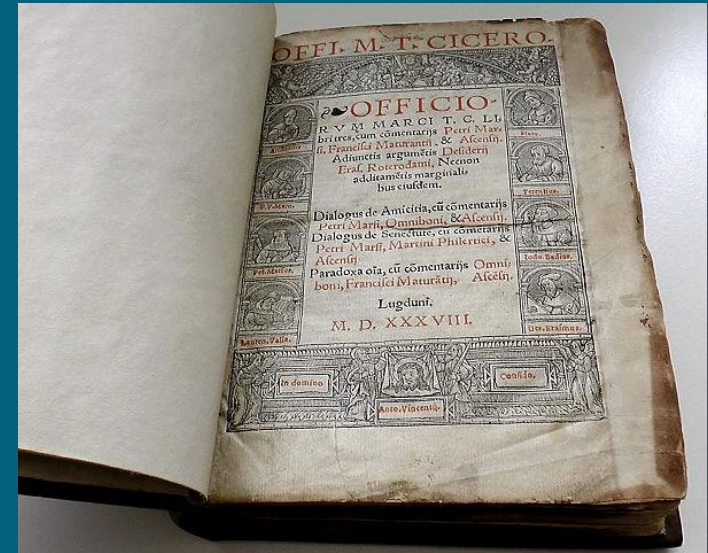 OFFI. M. T. CICERO.
OFFICIO-
RVM MARCI T. C. LI-
bri tres, cum cōmentarijs Petri Mar-
si, Francisci Maturantij, & Ascensij.
Adiunctis argumētis Desiderij
Eras. Roterodami, Necnon
additamētis marginali
bus eiusdem.
Dialogus de Amicitia, cū cōmentarijs
Petri Marsi, Omniboni, & Ascensij.
Dialogus de Senectute, cū cōmetarijs
Petri Marsi, Martini Philertici, &
Ascensij.
Paradoxa oīa, cū cōmentarijs Omni-
boni, Francisci Maturātij, Ascēsij.
Lugduni.
M. D. XXXVIII.
P. V. Maro.
Pet. Marsus.
Lauren. Valla.
Plato.
Terentius.
Iodo. Badius.
Des. Erasmus.
In domino
Confido.
Anto. Vincentij.